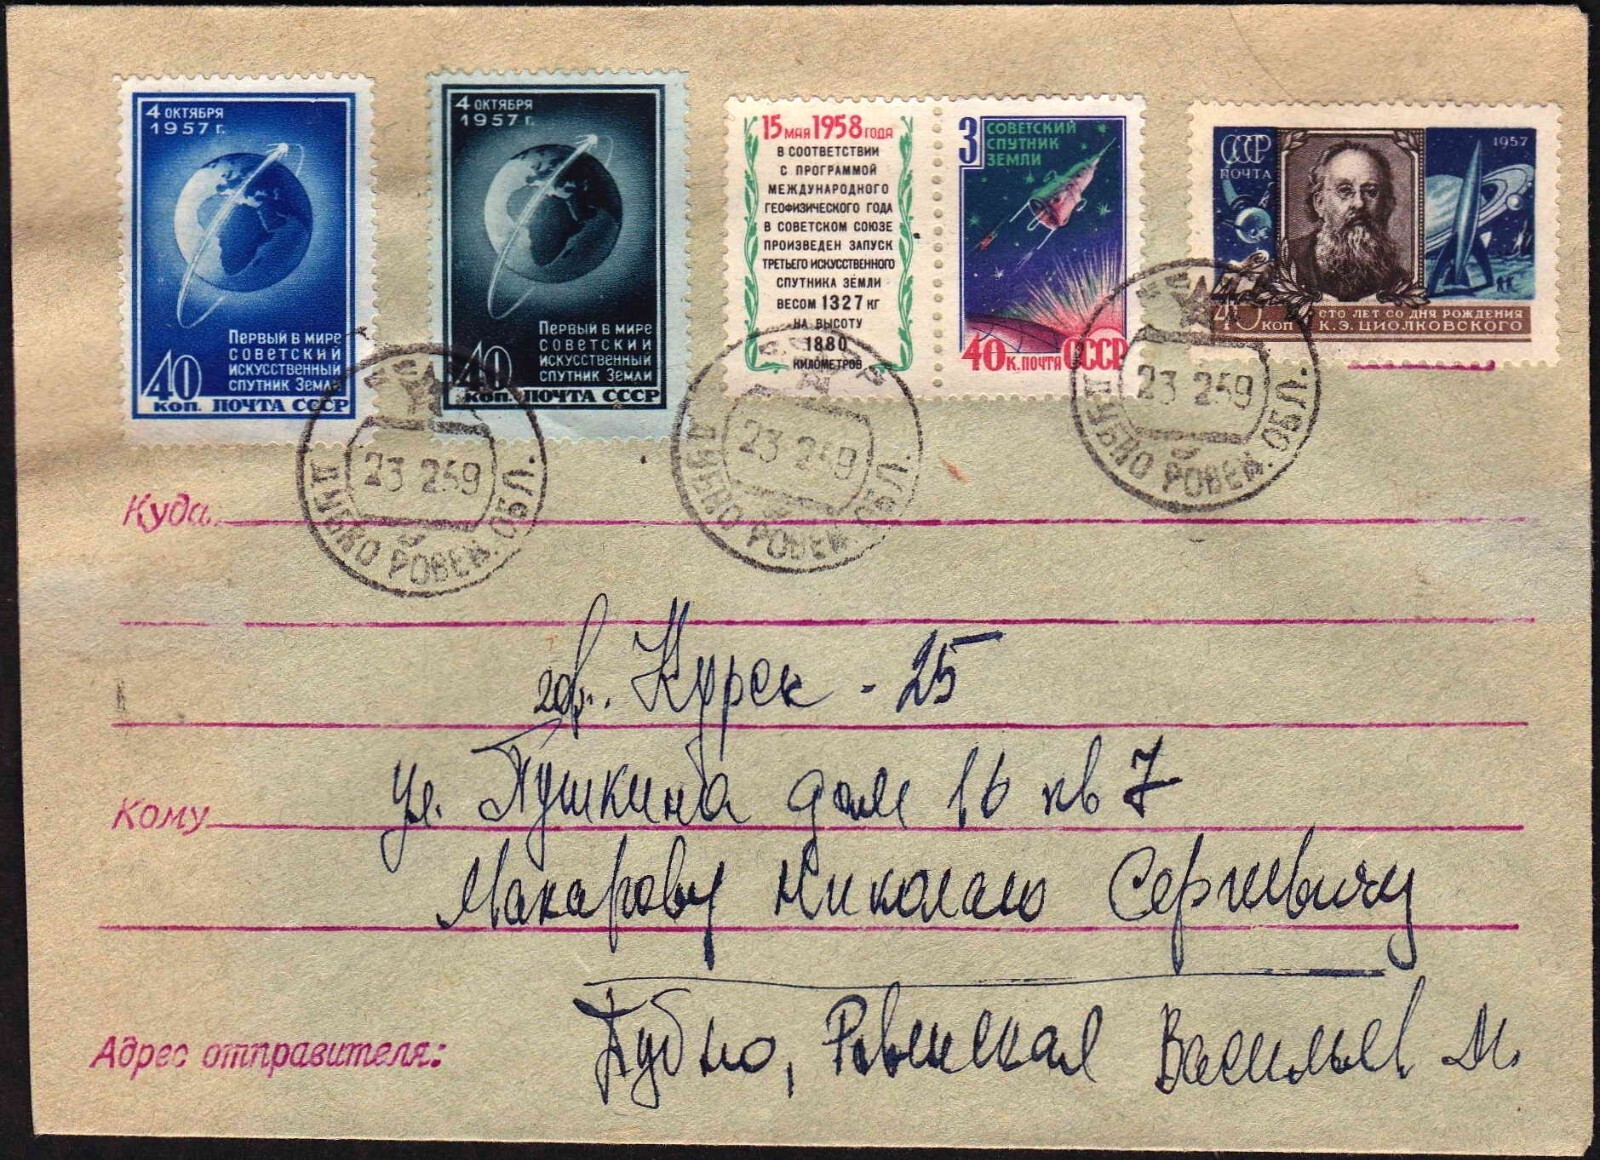 4 ОКТЯБРЯ
1957 г.
Первый в мире
советский
искусственный
спутник Земли
40
коп. ПОЧТА СССР
4 ОКТЯБРЯ
1957 г.
Первый в мире
советский
искусственный
спутник Земли
40
коп. ПОЧТА СССР
15 МАЯ 1958 ГОДА
В СООТВЕТСТВИИ
С ПРОГРАММОЙ
МЕЖДУНАРОДНОГО
ГЕОФИЗИЧЕСКОГО ГОДА
В СОВЕТСКОМ СОЮЗЕ
ПРОИЗВЕДЕН ЗАПУСК
ТРЕТЬЕГО ИСКУССТВЕННОГО
СПУТНИКА ЗЕМЛИ
ВЕСОМ 1327 КГ
НА ВЫСОТУ
1880
КИЛОМЕТРОВ
3 СОВЕТСКИЙ
СПУТНИК
ЗЕМЛИ
40 К. ПОЧТА СССР
СССР
ПОЧТА
1957
40 КОП
СТО ЛЕТ СО ДНЯ РОЖДЕНИЯ
К.Э. ЦИОЛКОВСКОГО
СССР
23 2 59
ДУБНО РОВЕН. ОБЛ.
СССР
23 2 59
ДУБНО РОВЕН. ОБЛ.
СССР
23 2 59
ДУБНО РОВЕН. ОБЛ.
Куда
гор. Курск - 25
ул. Пушкина дом 16 кв 7
Кому
Макарову Николаю Сергеевичу
Адрес отправителя:
Дубно, Ровенская Васильев М.